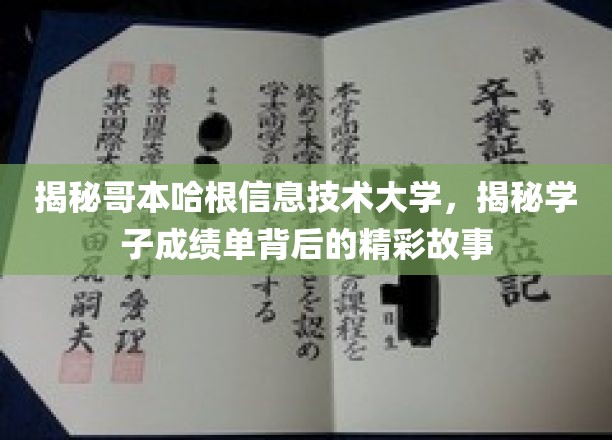 揭秘哥本哈根信息技术大学，揭秘学
子成绩单背后的精彩故事
第 号
卒業証
位記
本学商学部
の課程を
修めて本学
とを認め
学士(商学)の
する
平成
東京国際大学
愛理
東京国際大
長田
嗣夫